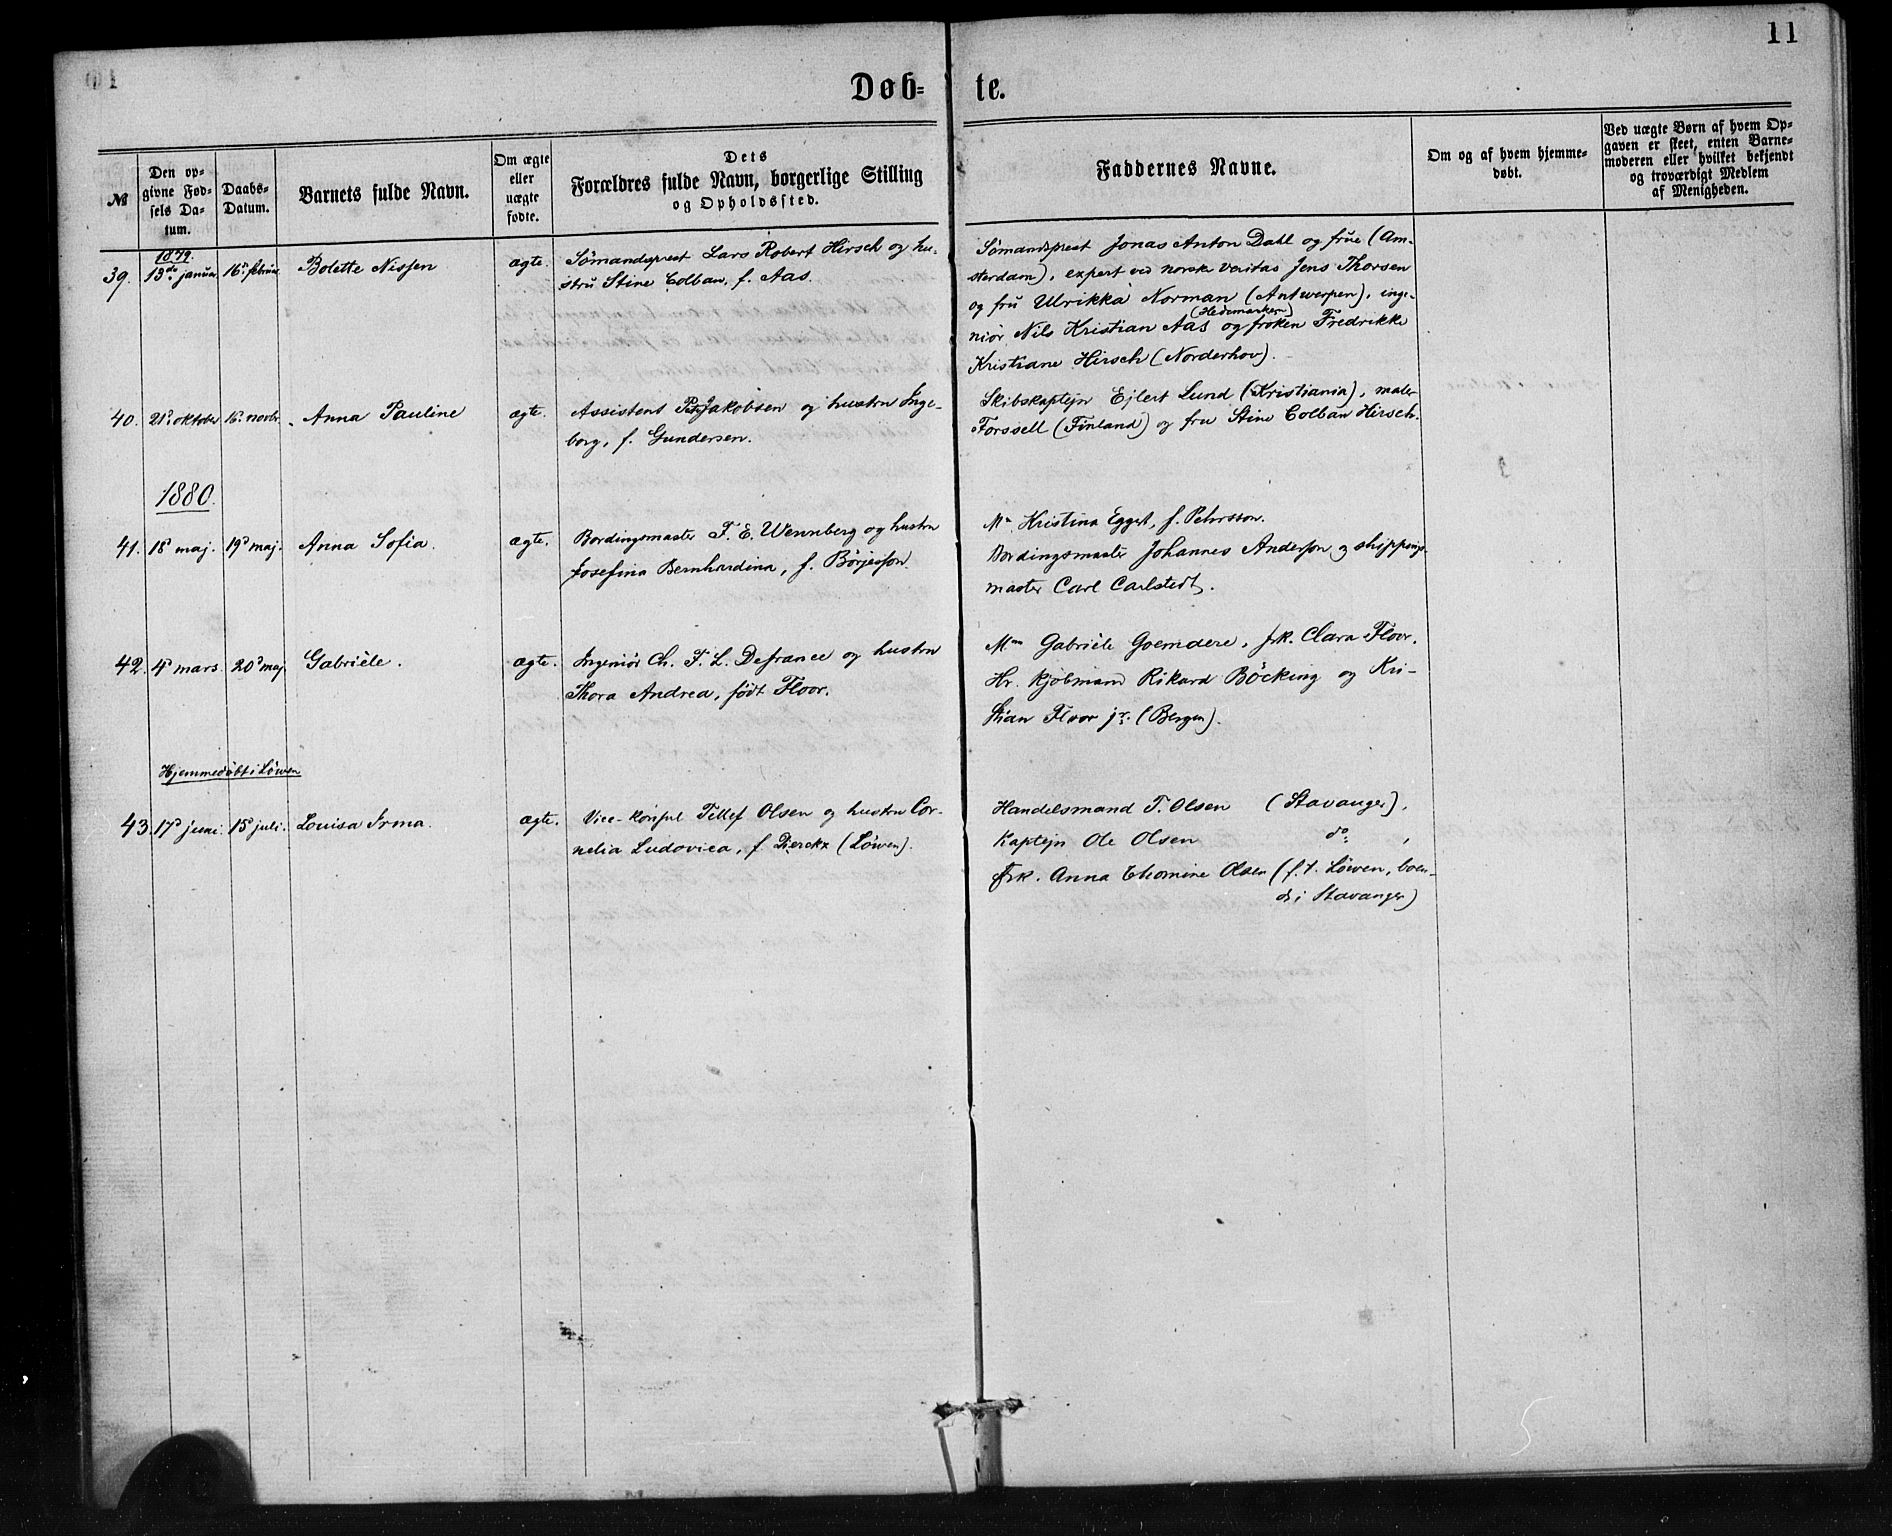 11
Døb- te.
№
Den op-
givne Fød-
sels Da-
tum.
Daabs-
Datum.
Barnets fulde Navn.
Om ægte
eller
uægte
fødte.
Dets
Forældres fulde Navn, borgerlige Stilling
og Opholdssted.
Faddernes Navne.
Om og af hvem hjemme-
døbt.
Ved uægte Børn af hvem Op-
gaven er skeet, enten Barne-
moderen eller hvilket bekjendt
og troværdigt Medlem
af Menigheden.
1879.
39. 13de januar 16de februar Bolette Nissen ægte. Sömandsprest Lars Robert Hirsch og hu-
stru Stine Colban, f. Aas.
Sömandsprest Jonas Anton Dahl og frue (Am-
sterdam), expert ved norske veritas Jens Thorsen
og fru Ulrikka Norman (Antwerpen), inge-
niör Nils Kristian Aas (Hedemarken) og fröken Fredrikke
Kristiane Hirsch (Norderhov).
40. 21de oktober 16de novbr. Anna Pauline ægte. Assistens Jakobsen og hustru Inge-
borg, f. Gundersen.
Skibskaptejn Ejlert Lund (Kristiania), maler
Forssell (Finland) og fru Stine Colban Hirsch.
1880.
41. 18 maj. 19d maj. Anna Sofia. ægte. Bordingsmaster F. E. Wennberg og hustru
Josefina Bernhardina, f. Börjesson.
Mm Kristina Egget, f. Pehrsson.
Bordingsmaster Johannes Anderson og shippings-
master Carl Carlstedt.
42. 4d mars. 20d maj. Gabriéle. ægte. Ingeniör Ch. F. L. Defrance og hustru
Thora Andrea, födt Floor.
Mme Gabriéle Goemdere, frk. Clara Floor.
Hr. kjöbmand Rikard Böcking og Kri-
stian Floor jr. (Bergen).
Hjemmedöbt i Löwen
43. 17d juni. 15d juli. Louisa Irma. ægte. Vice-konsul Tellef Olsen og hustru Cor-
nelia Ludovica, f. Dierckx (Löwen).
Handelsmand T. Olsen (Stavanger),
Kaptejn Ole Olsen do,
Frk. Anna Thomine Olsen (f.t. Löwen, boen-
de i Stavanger)